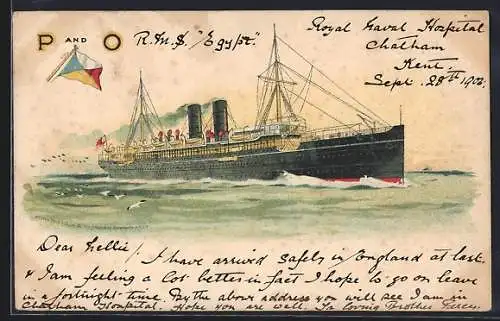 P AND O
R.M.S. "Egypt."
Royal Naval Hospital
Chatham
Kent.
Sept. 28th 1902.
Dear Nellie! I have arrived safely in England at last
& I am feeling a lot better in fact I hope to go on leave
in a fortnight time. By the above address you will see I am in
Chatham Hospital. Hope you are well. Yr loving Brother